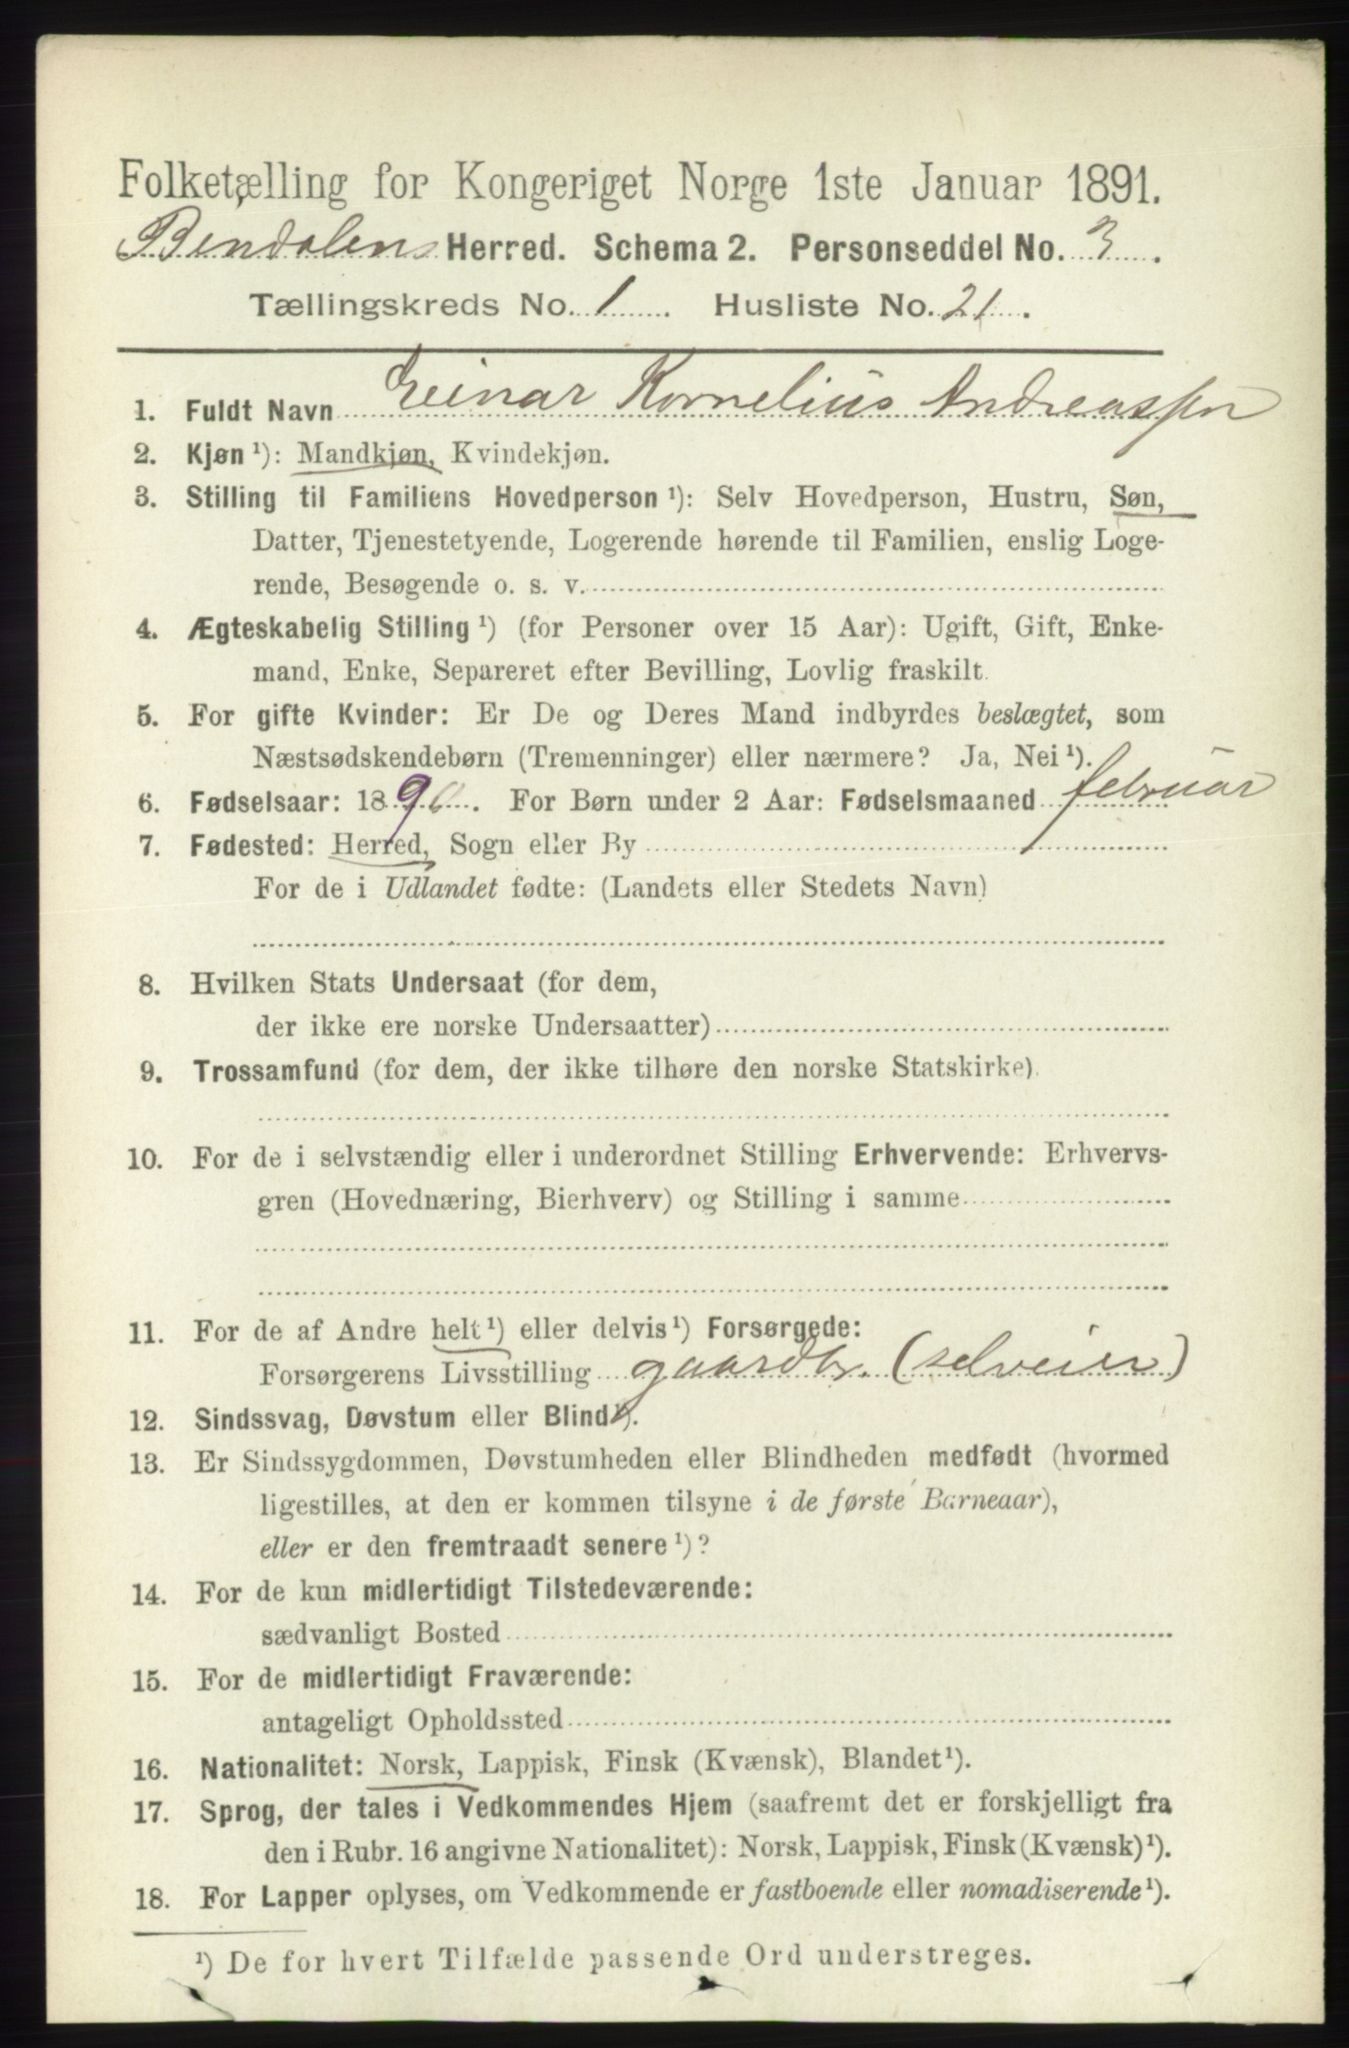 Folketælling for Kongeriget Norge 1ste Januar 1891.
Bendalens Herred. Schema 2. Personseddel No. 3.
Tællingskreds No. 1. Husliste No. 21.
1. Fuldt Navn Einar Kornelius Andreassen
2. Kjøn ¹): Mandkjøn, Kvindekjøn.
3. Stilling til Familiens Hovedperson ¹): Selv Hovedperson, Hustru, Søn,
Datter, Tjenestetyende, Logerende hørende til Familien, enslig Loge-
rende, Besøgende o. s. v.
4. Ægteskabelig Stilling ¹) (for Personer over 15 Aar): Ugift, Gift, Enke-
mand, Enke, Separeret efter Bevilling, Lovlig fraskilt.
5. For gifte Kvinder: Er De og Deres Mand indbyrdes beslægtet, som
Næstsødskendebørn (Tremenninger) eller nærmere? Ja, Nei ¹).
6. Fødselsaar: 1890. For Børn under 2 Aar: Fødselsmaaned februar
7. Fødested: Herred, Sogn eller By
For de i Udlandet fødte: (Landets eller Stedets Navn)
8. Hvilken Stats Undersaat (for dem,
der ikke ere norske Undersaatter)
9. Trossamfund (for dem, der ikke tilhøre den norske Statskirke).
10. For de i selvstændig eller i underordnet Stilling Erhvervende: Erhvervs-
gren (Hovednæring, Bierhverv) og Stilling i samme
11. For de af Andre helt ¹) eller delvis ¹) Forsørgede:
Forsørgerens Livsstilling gaardbr. (selveier)
12. Sindssvag, Døvstum eller Blind ¹).
13. Er Sindssygdommen, Døvstumheden eller Blindheden medfødt (hvormed
ligestilles, at den er kommen tilsyne i de første Barneaar),
eller er den fremtraadt senere ¹)?
14. For de kun midlertidigt Tilstedeværende:
sædvanligt Bosted
15. For de midlertidigt Fraværende:
antageligt Opholdssted
16. Nationalitet: Norsk, Lappisk, Finsk (Kvænsk), Blandet ¹).
17. Sprog, der tales i Vedkommendes Hjem (saafremt det er forskjelligt fra
den i Rubr. 16 angivne Nationalitet): Norsk, Lappisk, Finsk (Kvænsk) ¹).
18. For Lapper oplyses, om Vedkommende er fastboende eller nomadiserende ¹).
¹) De for hvert Tilfælde passende Ord understreges.